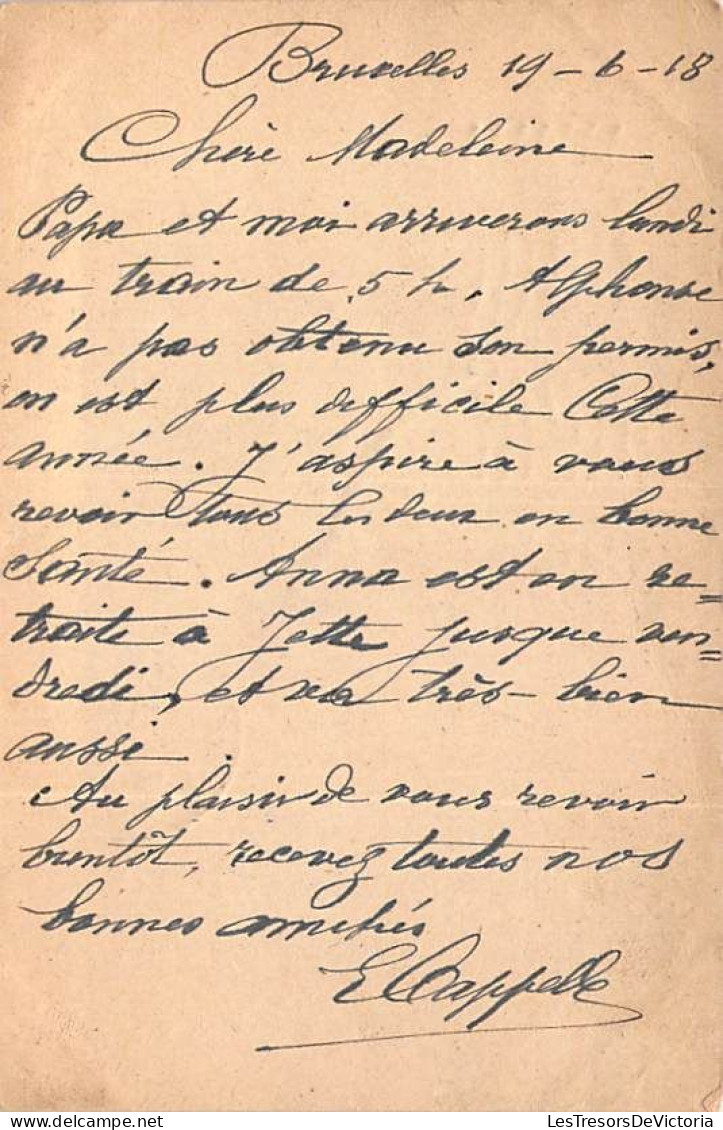 Bruxelles 19-6-18
Chère Madeleine
Papa et moi arriverons lundi
au train de 5 h. Alphonse
n'a pas obtenu son permis,
on est plus difficile Cette
année. J'aspire à vous
revoir tous les deux en bonne
Santé. Anna est en re=
traite à Jette jusque ven=
dredi, et va très-bien
aussi.
Au plaisir de vous revoir
bientôt, recevez toutes nos
bonnes amitiés
E Cappelle
LesTresorsDeVictoria